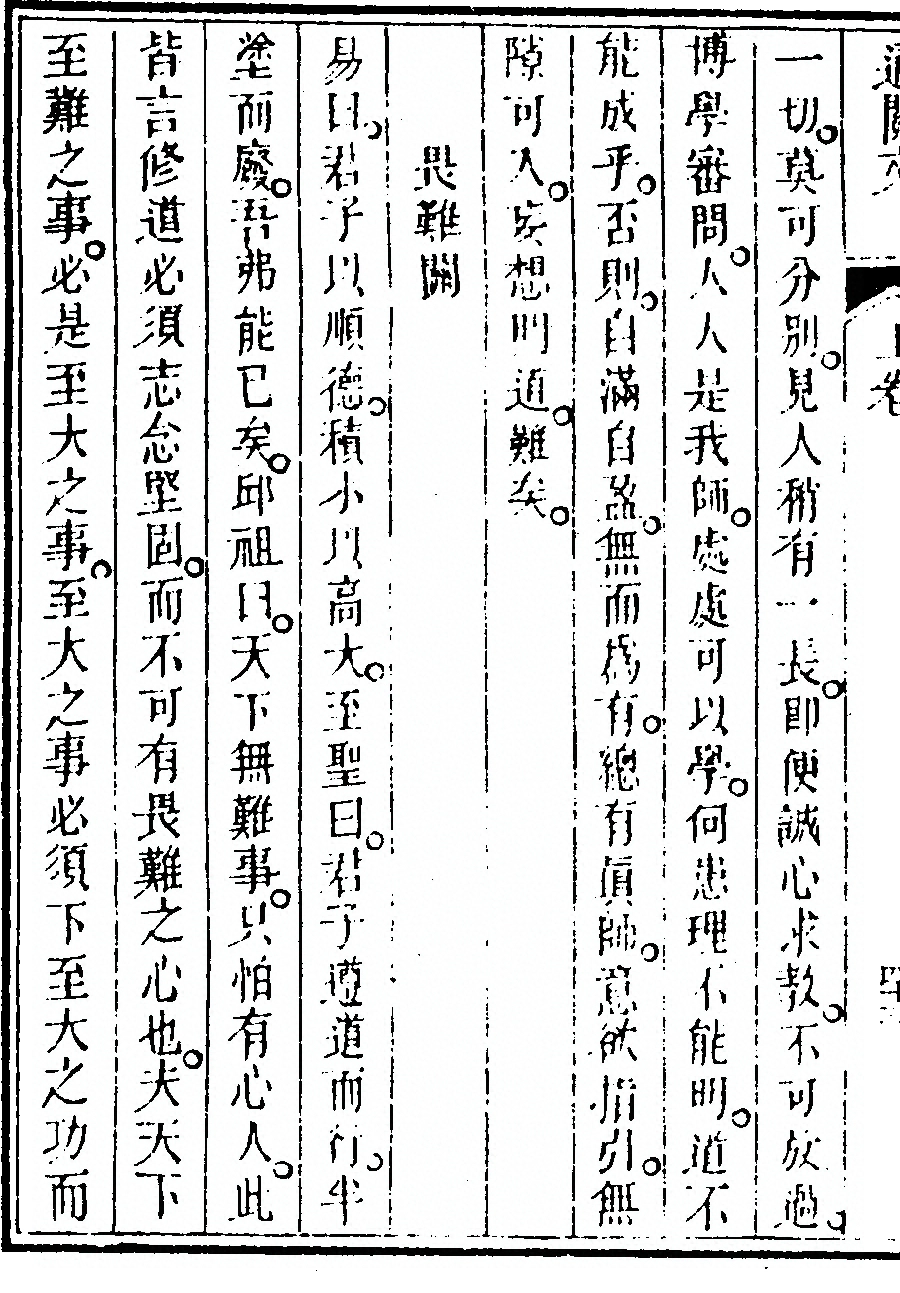 通關文 上卷
一切。莫可分別。見人稍有一長。即便誠心求教。不可放過。
博學審問。人人是我師。處處可以學。何患理不能明。道不
能成乎。否則。自滿自盈。無而爲有。總有眞師。意欲指引。無
隙可入。妄想明道。難矣。
畏難關
易曰。君子以順德。積小以高大。至聖曰。君子遵道而行。半
塗而廢。吾弗能已矣。邱祖曰。天下無難事。只怕有心人。此
皆言修道必須志念堅固。而不可有畏難之心也。夫天下
至難之事。必是至大之事。至大之事必須下至大之功而